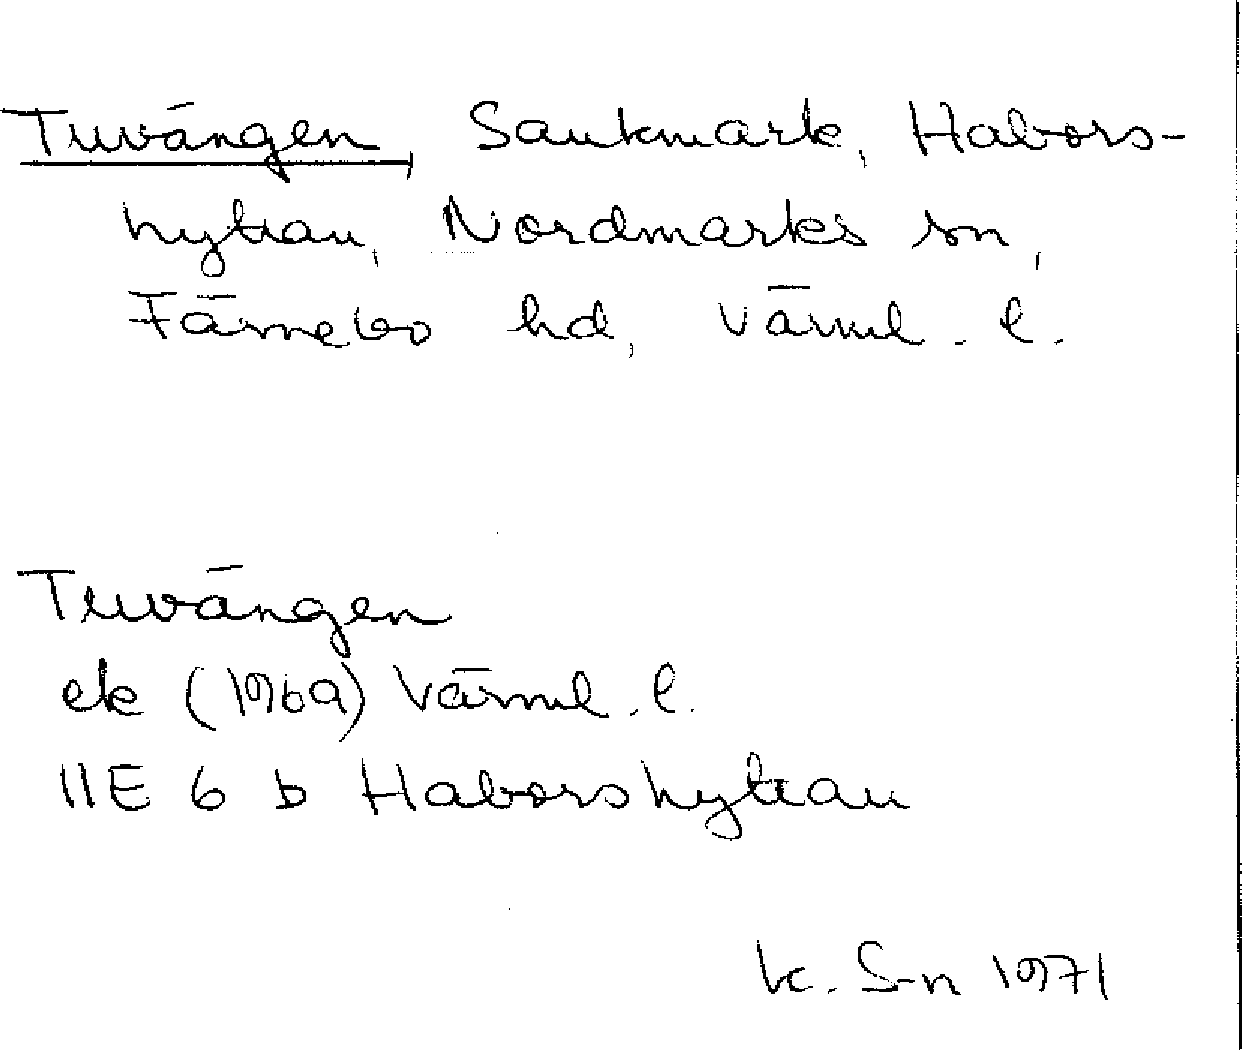 Tuvängen, Sankmark, Habors-
hyttan, Nordmarks sn,
Färnebo hd, Värml. l.
Tuvängen
ek (1969) Värml. l.
11E 6 b Haborshyttan
K. S-n 1971